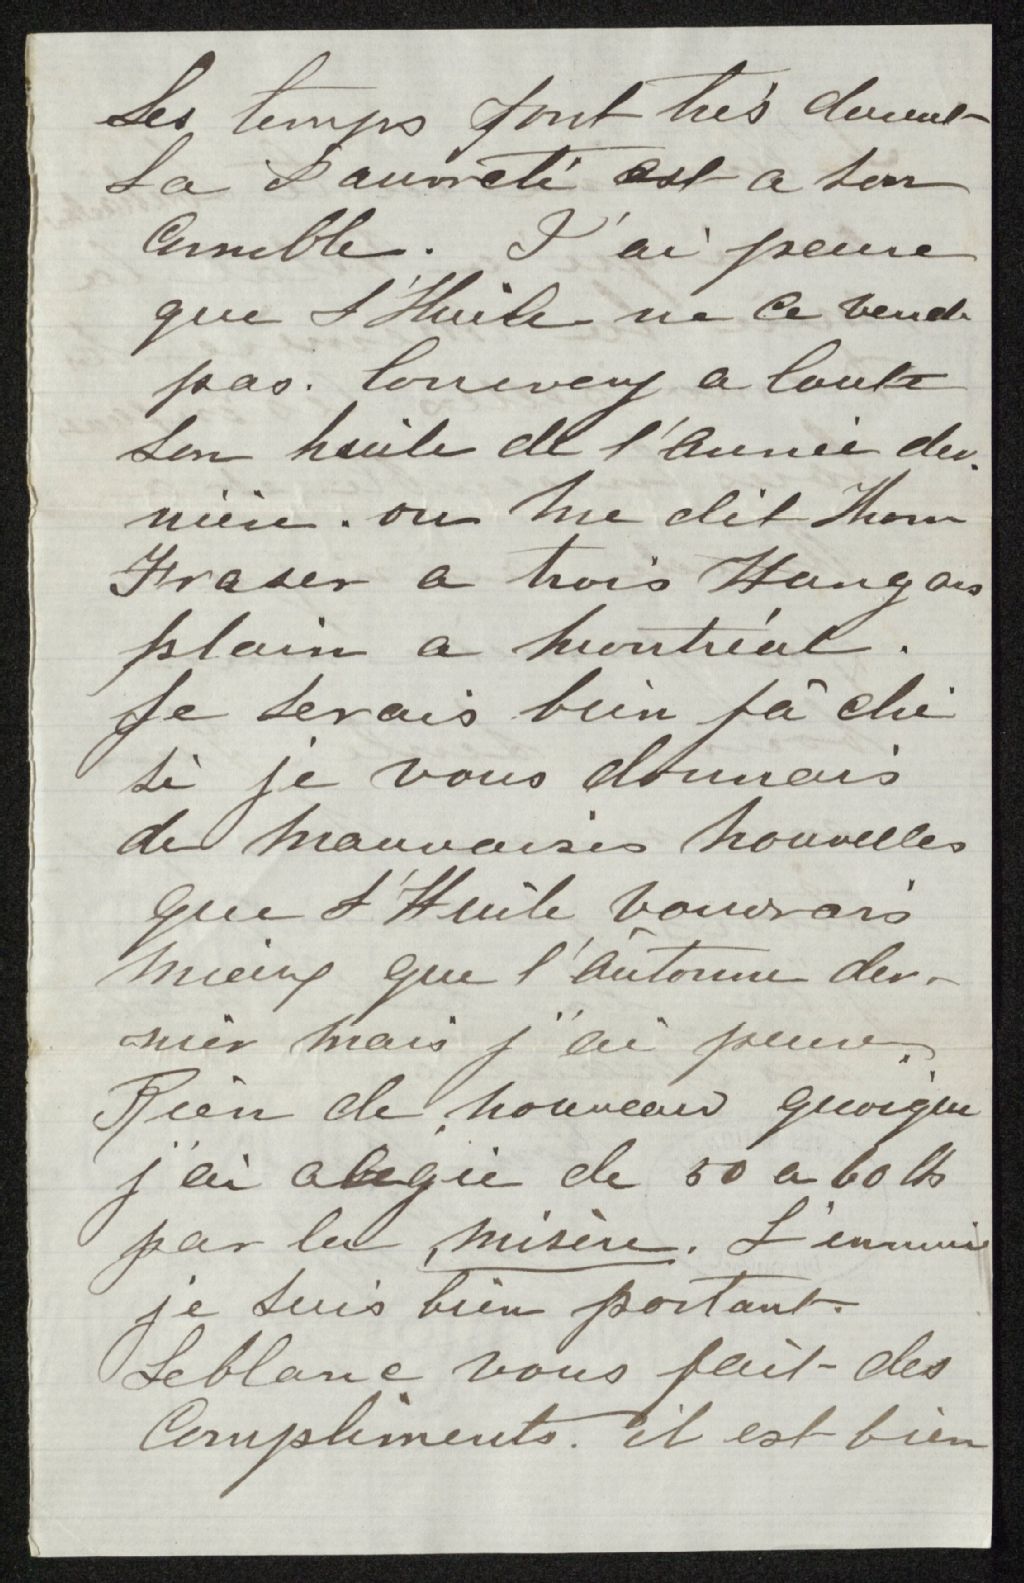 Les temps sont très durent
La Pauvreté est a son
Comble. J'ai peure
que L'Huile ne Ce vend
pas. a toute
son huile de l'Année der.
nière. on me dit Thom
Fraser a trois Hangars
plain a Montréal.
Je serais bien fâ ché
si je vous donnais
de mauvaises nouvelles
que L'Huile, voudrais
mieux que l'Autonne der-
nier mais j'ai peure.
Rien de nouveau quoique
j'ai alégie de 50 a 60 lbs
par la misère. L'ennuie
je suis bien portant.
Leblanc vous fait des
Compliments. il est bien